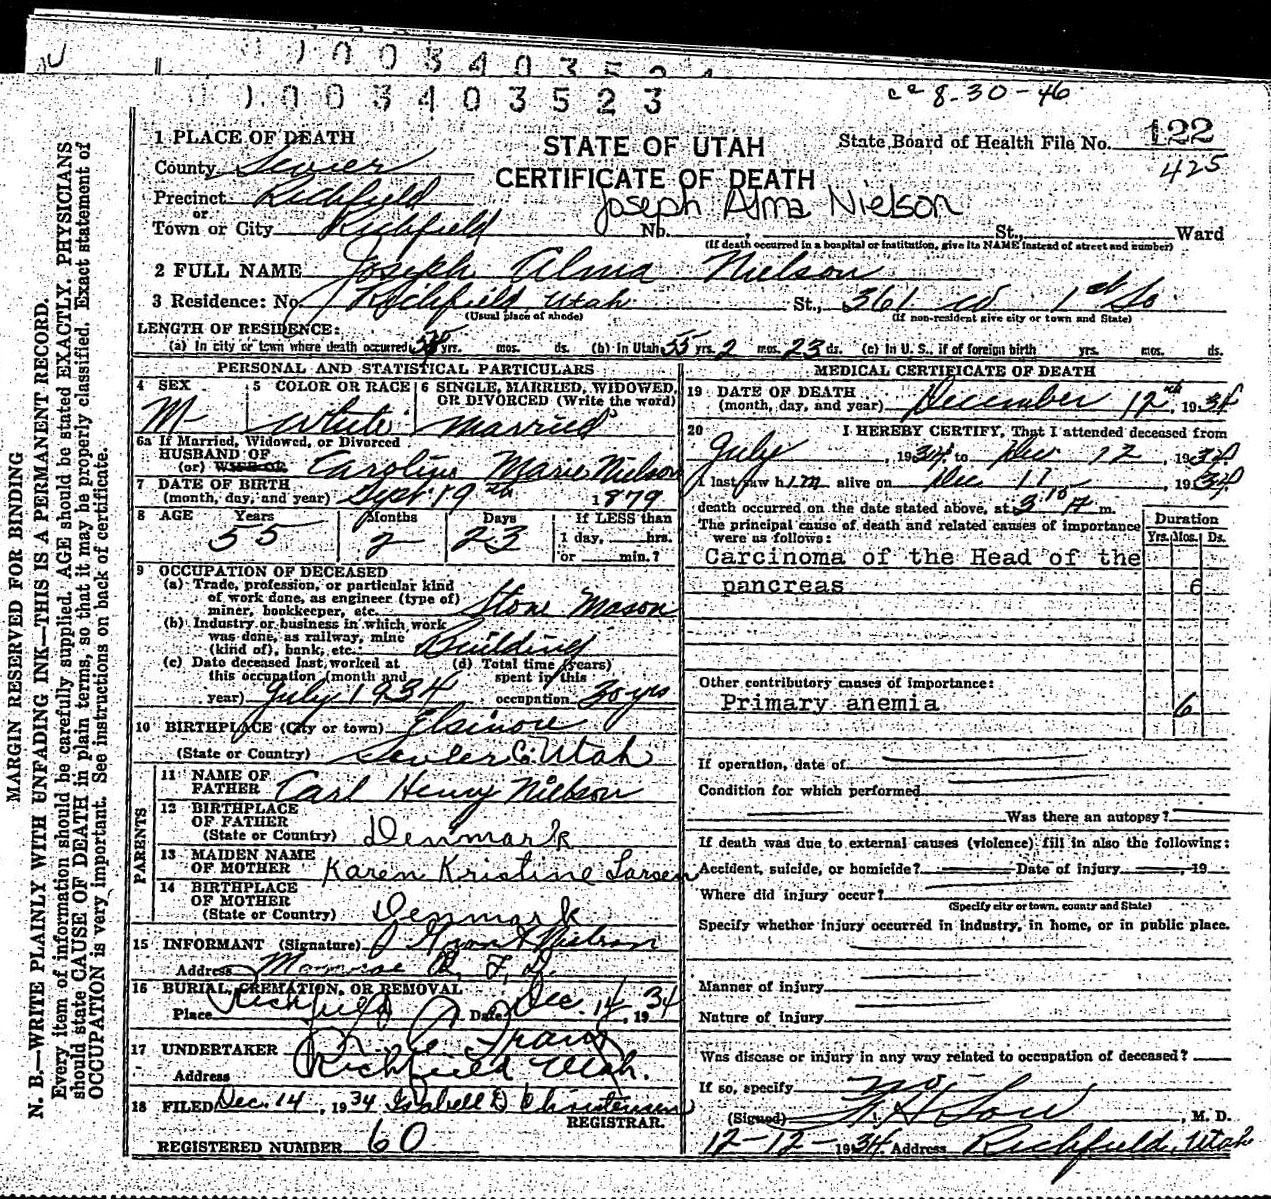 0 0 0 3 4 0 3 5 2
0 0 0 3 4 0 3 5 2 3
8-30-46
MARGIN RESERVED FOR BINDING
N. B.—WRITE PLAINLY WITH UNFADING INK—THIS IS A PERMANENT RECORD.
Every item of information should be carefully supplied. AGE should be stated EXACTLY. PHYSICIANS
should state CAUSE OF DEATH in plain terms, so that it may be properly classified. Exact statement of
OCCUPATION is very important. See instructions on back of certificate.
STATE OF UTAH
CERTIFICATE OF DEATH
State Board of Health File No. 122
425
1 PLACE OF DEATH
County Sevier
Precinct Richfield
or
Town or City Richfield
Joseph Alma Nielson
No. , St., Ward
(If death occurred in a hospital or institution, give its NAME instead of street and number)
2 FULL NAME Joseph Alma Nielson
3 Residence: No. Richfield Utah St., 361 W 1st So
(Usual place of abode) (If non-resident give city or town and State)
LENGTH OF RESIDENCE:
(a) In city or town where death occurred yrs. mos. ds. (b) In Utah 55 yrs. 2 mos. 23 ds. (c) In U. S., if of foreign birth yrs. mos. ds.
PERSONAL AND STATISTICAL PARTICULARS
4 SEX M
5 COLOR OR RACE White
6 SINGLE, MARRIED, WIDOWED,
OR DIVORCED (Write the word) Married
6a If Married, Widowed, or Divorced
HUSBAND OF
(or) WIFE OF Caroline Marie Nielson
7 DATE OF BIRTH
(month, day, and year) Sept 19th 1879
8 AGE Years 55 Months 2 Days 23
If LESS than
1 day, hrs.
or min.?
9 OCCUPATION OF DECEASED
(a) Trade, profession, or particular kind
of work done, as engineer (type of)
miner, bookkeeper, etc. Stone Mason
(b) Industry or business in which work
was done, as railway, mine
(kind of), bank, etc. Building
(c) Date deceased last worked at
this occupation (month and
year) July 1934
(d) Total time (years)
spent in this
occupation 30 yrs
10 BIRTHPLACE (City or town) Elsinore
(State or Country) Sevier Co Utah
PARENTS
11 NAME OF
FATHER Carl Henry Nielson
12 BIRTHPLACE
OF FATHER
(State or Country) Denmark
13 MAIDEN NAME
OF MOTHER Karen Kristine Larsen
14 BIRTHPLACE
OF MOTHER
(State or Country) Denmark
15 INFORMANT (Signature) Nielson
Address Monroe R. F. D.
16 BURIAL, CREMATION, OR REMOVAL
Place Richfield Date Dec. 14, 1934
17 UNDERTAKER
Address Richfield Utah.
18 FILED Dec. 14, 1934 Isabell D Christensen
REGISTRAR.
REGISTERED NUMBER 60
MEDICAL CERTIFICATE OF DEATH
19 DATE OF DEATH
(month, day, and year) December 12th, 1934
20 I HEREBY CERTIFY, That I attended deceased from
July 1934 to Dec 12, 1934
I last saw him alive on Dec 11 1934
death occurred on the date stated above, at 3 10 a m.
The principal cause of death and related causes of importance
were as follows:
Duration
Yrs. Mos. Ds.
Carcinoma of the Head of the
pancreas 6
Other contributory causes of importance:
Primary anemia 6
If operation, date of
Condition for which performed
Was there an autopsy?
If death was due to external causes (violence) fill in also the following:
Accident, suicide, or homicide? Date of injury , 19
Where did injury occur?
(Specify city or town, county and State)
Specify whether injury occurred in industry, in home, or in public place.
Manner of injury
Nature of injury
Was disease or injury in any way related to occupation of deceased?
If so, specify no
(Signed) , M. D.
12-12-1934 Address Richfield, Utah